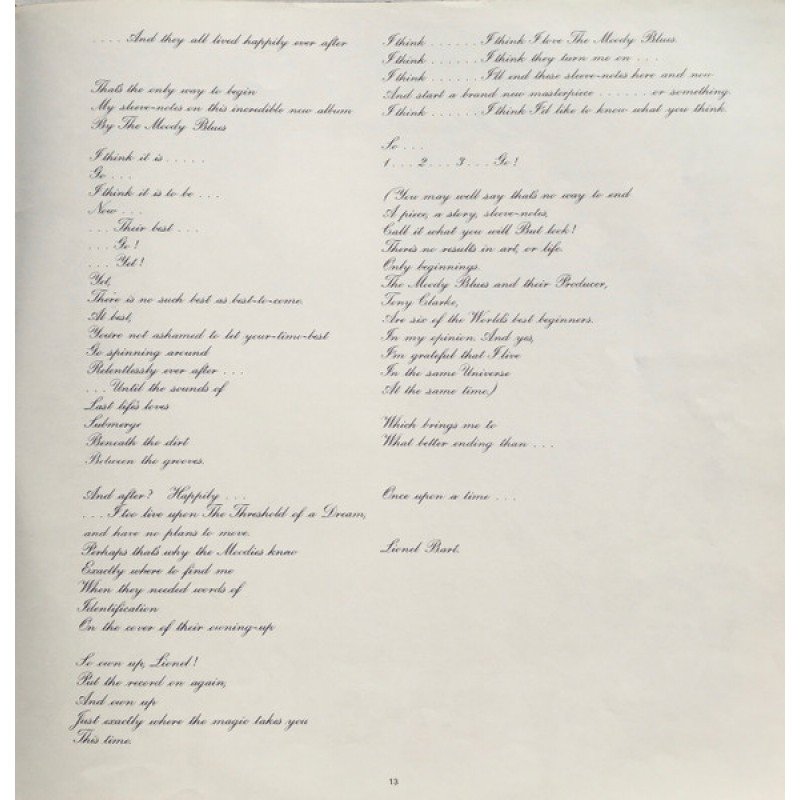 . . . . And they all lived happily ever after
Thats the only way to begin
My sleeve-notes on this incredible new album
By The Moody Blues
I think it is . . . . .
Go . . .
I think it is to be . . .
Now . . .
. . . Their best . . .
. . . Go!
. . . Yet!
Yet,
There is no such best as best-to-come.
At best,
You're not ashamed to let your-time-best
Go spinning around
Relentlessly ever after . . .
. . . Until the sounds of
Last life's loves
Submerge
Beneath the dirt
Between the grooves.
And after? Happily . . .
. . . I too live upon The Threshold of a Dream,
and have no plans to move.
Perhaps that's why the Moodies knew
Exactly where to find me
When they needed words of
Identification
On the cover of their owning-up
So own up, Lionel!
Put the record on again,
And own up
Just exactly where the magic takes you
This time.
I think . . . . . . . I think I love The Moody Blues.
I think . . . . . . . I think they turn me on . . .
I think . . . . . . . I'll end these sleeve-notes here and now
And start a brand new masterpiece . . . . . . . or something.
I think . . . . . . . I think I'd like to know what you think.
So . . .
1 . . . 2 . . . 3 . . . Go!
(You may well say that's no way to end
A piece, a story, sleeve-notes,
Call it what you will But look!
There's no results in art, or life.
Only beginnings.
The Moody Blues and their Producer,
Tony Clarke,
Are six of the World's best beginners.
In my opinion. And yes,
I'm grateful that I live
In the same Universe
At the same time.)
Which brings me to
What better ending than . . .
Once upon a time . . .
Lionel Bart.
13